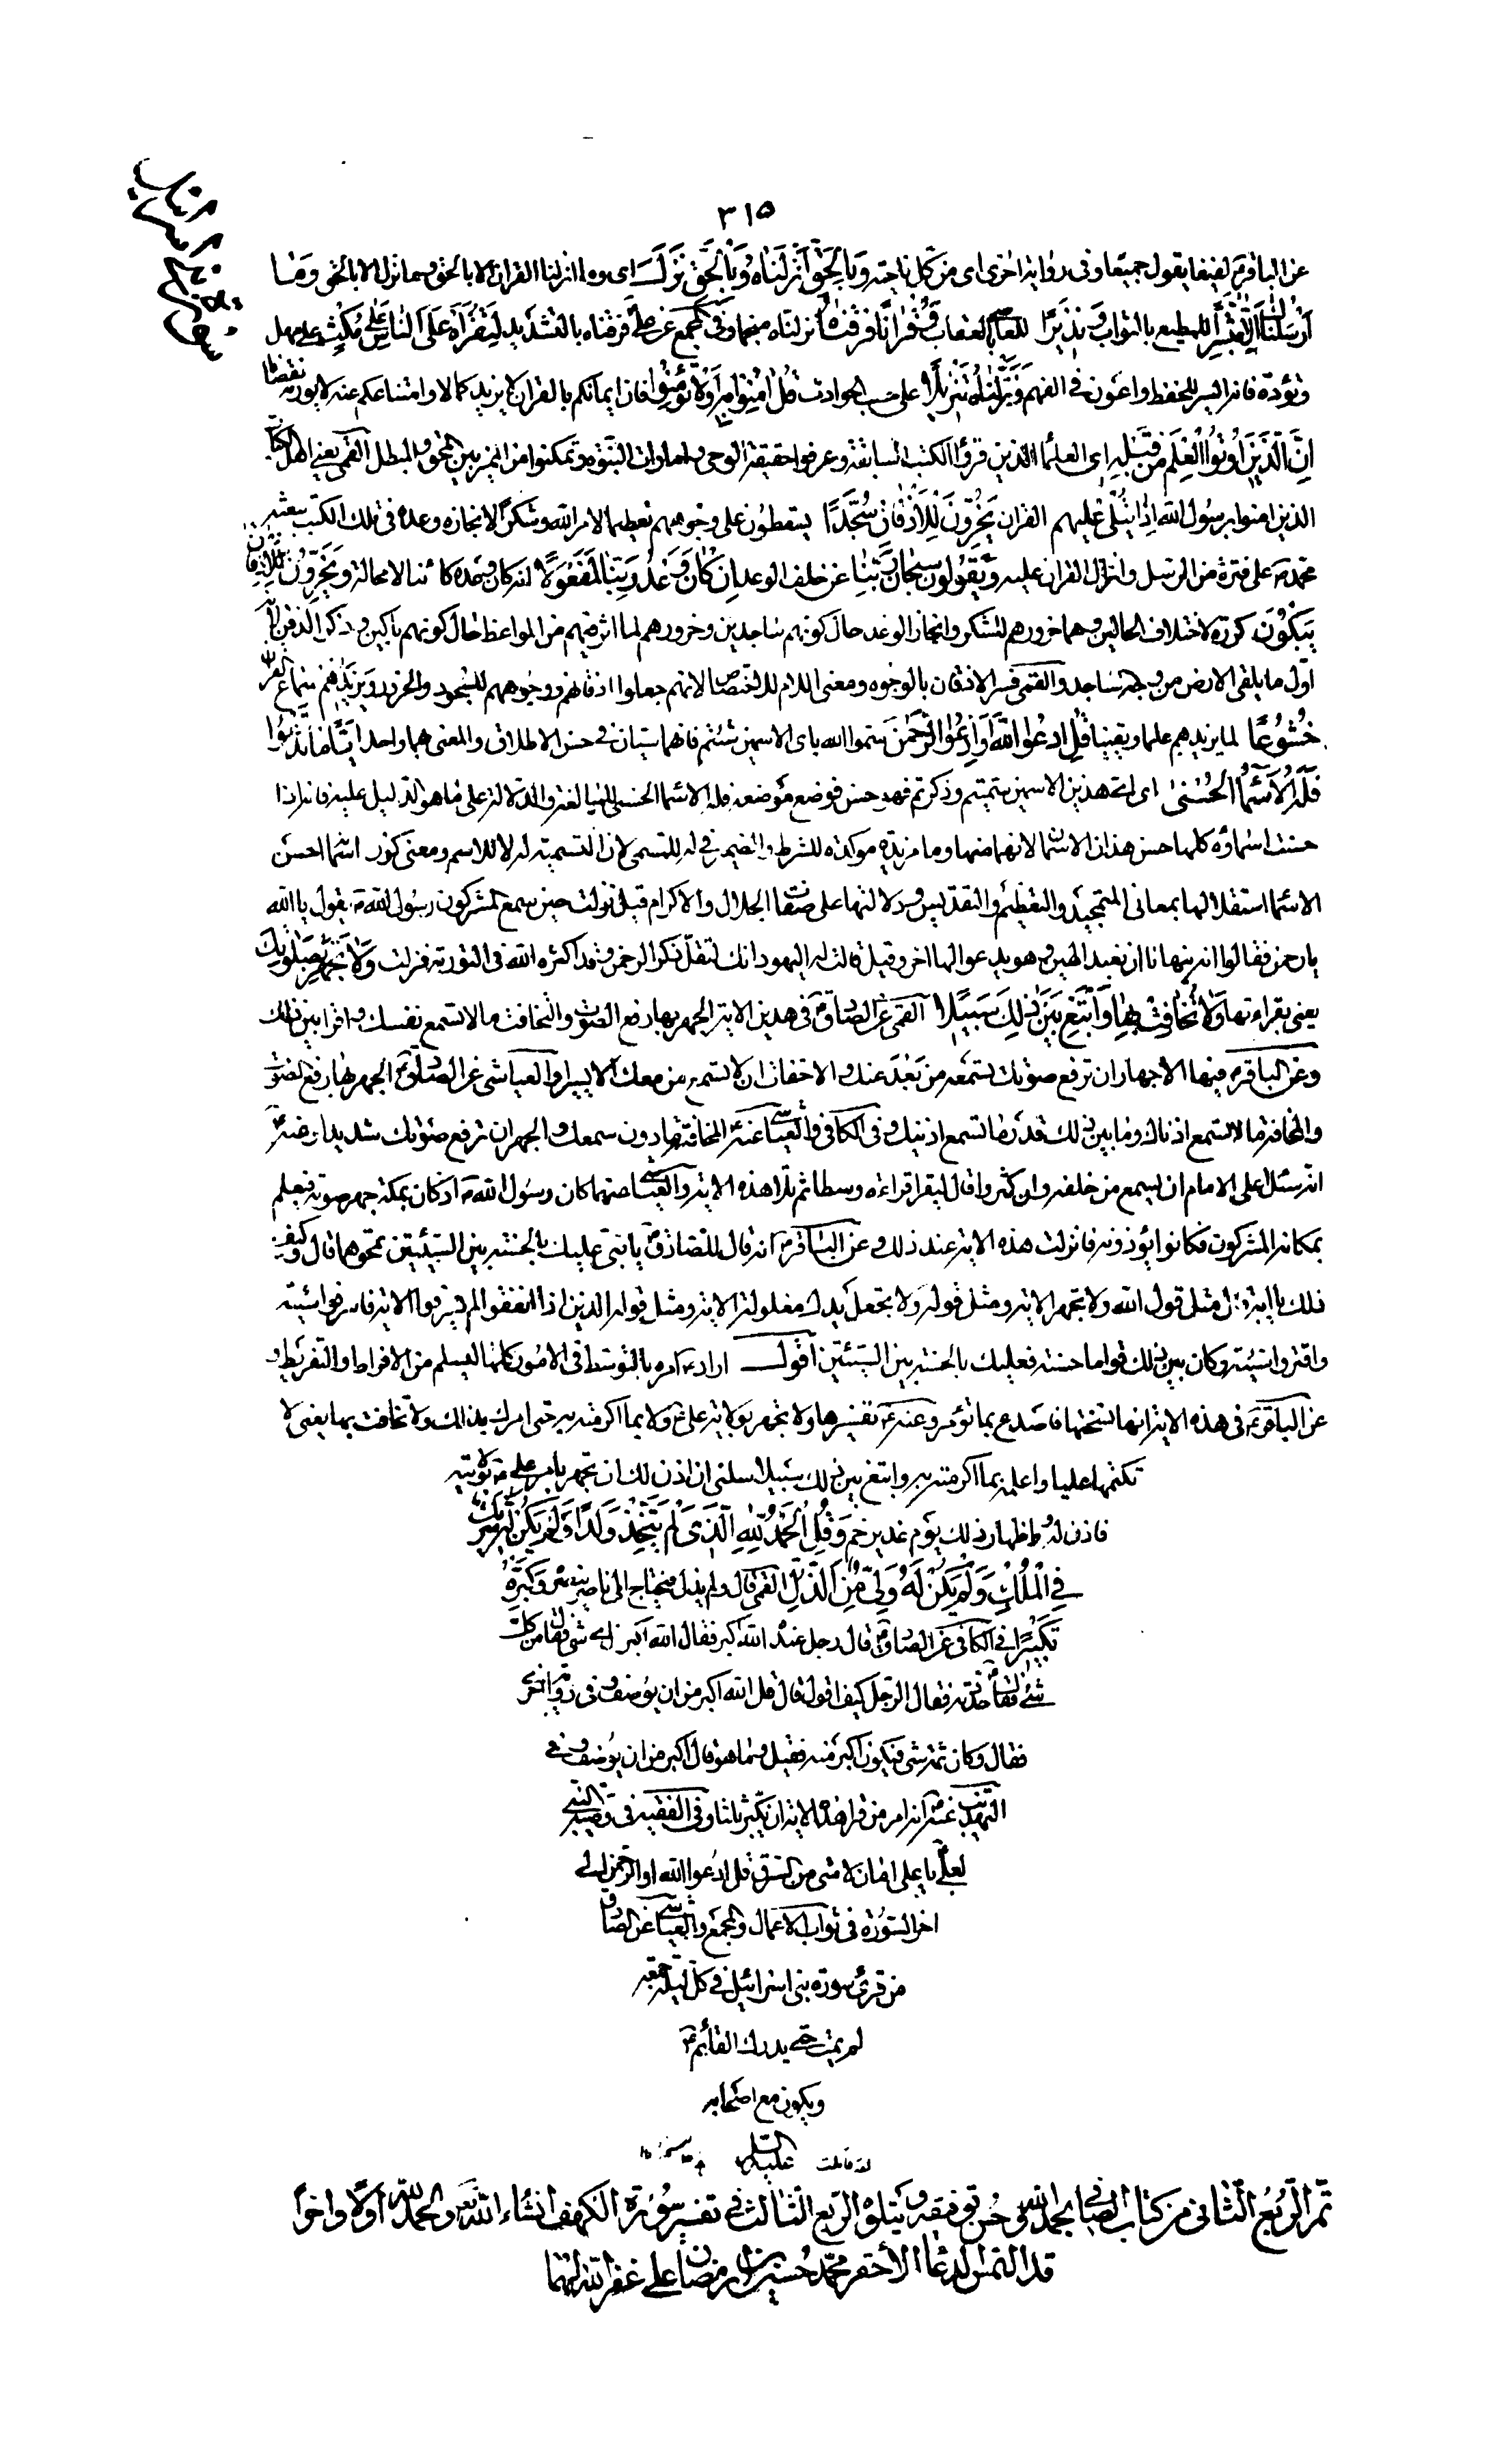 ٣١٥
عن الباقر ع لفيفا يقول جميعا وفى رواية اخرى اى من كل ناحية وَبِالْحَقِّ أَنْزَلْنَاهُ وَبِالْحَقِّ نَزَلَ اى وما انزلنا القران الا بالحق وما نزل الا بالحق وَمَا
أَرْسَلْنَاكَ إِلَّا مُبَشِّرًا للمطيع بالثواب وَنَذِيرًا للعاصى بالعقاب وَقُرْآنًا فَرَقْنَاهُ نزلناه منجما وفى المجمع عن على ع فرقناه بالتشديد لِتَقْرَأَهُ عَلَى النَّاسِ عَلَى مُكْثٍ على مهل
وتؤدة فانه ايسر للحفظ واعون فى الفهم وَنَزَّلْنَاهُ تَنْزِيلًا على حسب الحوادث قُلْ آمِنُوا بِهِ أَوْ لَا تُؤْمِنُوا فان ايمانكم بالقران لا يزيده كمالا وامتناعكم عنه لا يورثه نقصانا
إِنَّ الَّذِينَ أُوتُوا الْعِلْمَ مِنْ قَبْلِهِ اى العلماء الذين قرؤا الكتب السابقة وعرفوا حقيقة الوحى وامارات النبوة وتمكنوا من الميز بين المحق والمبطل القمى يعنى اهل الكتاب
الذين امنوا برسول الله إِذَا يُتْلَى عَلَيْهِمْ القران يَخِرُّونَ لِلْأَذْقَانِ سُجَّدًا يسقطون على وجوههم تعظيما لامر الله وشكرا لانجازه وعده فى تلك الكتب ببعثة
محمد ص على فترة من الرسل وانزال القران عليه وَيَقُولُونَ سُبْحَانَ رَبِّنَا عن خلف الوعد إِنْ كَانَ وَعْدُ رَبِّنَا لَمَفْعُولًا انه كان وعده كائنا لا محالة وَيَخِرُّونَ لِلْأَذْقَانِ
يَبْكُونَ كرره لاختلاف الحالين وهما خرورهم للشكر وانجاز الوعد حال كونهم ساجدين وخرورهم لما اثر فيهم من المواعظ حال كونهم باكين وذكر الذقن لانه
اول ما يلقى الارض من وجه الساجد والقمى فسر الاذقان بالوجوه ومعنى اللام للاختصاص لانهم جعلوا اذقانهم ووجوههم للسجود والخرور وَيَزِيدُهُمْ سماع القران
خُشُوعًا لما يزيدهم علما ويقينا قُلِ ادْعُوا اللَّهَ أَوِ ادْعُوا الرَّحْمَنَ سموا الله باى الاسمين شئتم فانهما سيان فى حسن الاطلاق والمعنى بهما واحد أَيًّا مَا تَدْعُوا
فَلَهُ الْأَسْمَاءُ الْحُسْنَى اى اى هذين الاسمين سميتم وذكرتم فهو حسن فوضع موضعه فله الاسماء الحسنى للمبالغة والدلالة على ما هو الدليل عليه فانه اذا
حسنت اسماؤه كلها حسن هذان الاسمان لانهما منها وما مزيدة موكدة للشرط والضمير فى له للمسمى لان التسمية له لا للاسم ومعنى كون اسماء احسن
الاسماء استقلالها بمعانى التمجيد والتعظيم والتقديس ودلالتها على صفات الجلال والاكرام قيل نزلت حين سمع المشركون رسول الله ص يقول يا الله
يا رحمن فقالوا انه ينهانا ان نعبد الهين وهو يدعو الها اخر وقيل قالت له اليهود انك لتقل ذكر الرحمن وقد اكثره الله فى التورية فنزلت وَلَا تَجْهَرْ بِصَلَوتِكَ
يعنى بقراءتها وَلَا تُخَافِتْ بِهَا وَابْتَغِ بَيْنَ ذَلِكَ سَبِيلًا القمى عن الصادق ع فى هذه الاية الجهر بها رفع الصوت والتخافت ما لا تسمع نفسك واقرا بين ذلك
وعن الباقر ع فيها الاجهار ان ترفع صوتك تسمعه من بعد عنك والاخفات ان لا تسمع من معك الا يسيرا والعياشى عن الصادق ع الجهر بها رفع الصوت
والمخافتة ما لا تسمع اذناك وما بين ذلك قدر ما تسمع اذنيك وفى الكافى والعياشى عنه ع المخافتة ما دون سمعك والجهر ان ترفع صوتك شديدا وعنه ع
انه سئل اعلى الامام ان يسمع من خلفه وان كثروا قال ليقرا قراءة وسطا ثم تلا هذه الاية والعياشى عنهما كان رسول الله ص اذ كان بمكة جهر صوته فيعلم
بمكانه المشركون فكانوا يؤذونه فانزلت هذه الاية عند ذلك وعن الباقر ع انه قال للصادق ع يا بنى عليك بالحسنة بين السيئتين تمحوهما قال وكيف
ذلك يا ابة قال مثل قول الله ولا تجهر الاية ومثل قوله ولا تجعل يدك مغلولة الاية ومثل قوله الذين اذا انفقوا لم يسرفوا الاية فاسرفوا سيئة
واقتروا سيئة وكان بين ذلك قواما حسنة فعليك بالحسنة بين السيئتين أقول اراد ع امره بالتوسط فى الامور كلها ليسلم من الافراط والتفريط و
عن الباقر ع فى هذه الاية انها نسختها فاصدع بما تؤمر وعنه ع تفسيرها ولا تجهر بولاية على ع ولا بما اكرمته به حتى امرك بذلك ولا تخافت بها يعنى لا
تكتمها عليا واعلمه بما اكرمته به وابتغ بين ذلك سبيلا سلنى ان اذن لك ان تجهر بامر على ع بولايته
فاذن له باظهار ذلك يوم غدير خم وَقُلِ الْحَمْدُ لِلَّهِ الَّذِي لَمْ يَتَّخِذْ وَلَدًا وَلَمْ يَكُنْ لَهُ شَرِيكٌ
فِي الْمُلْكِ وَلَمْ يَكُنْ لَهُ وَلِيٌّ مِنَ الذُّلِّ القمى قال ولم يذل فيحتاج الى ناصر ينصره وَكَبِّرْهُ
تَكْبِيرًا فى الكافى عن الصادق ع قال رجل عنده الله اكبر فقال الله اكبر من اى شىء فقال من كل
شىء فقال ع حددته فقال الرجل كيف اقول قال قل الله اكبر من ان يوصف وفى رواية اخرى
فقال وكان ثم شىء فيكون اكبر منه فقيل وما هو قال اكبر من ان يوصف وفى
التهذيب عنه ع انه امر من قرا هذه الاية ان يكبر ثلثا وفى الفقيه فى وصية النبى
لعلى ع يا على امان لامتى من السرق قل ادعوا الله او ادعوا الرحمن الى
اخر السورة فى ثواب الاعمال والمجمع والعياشى عن الصادق
من قرء سورة بنى اسرائيل فى كل ليلة جمعة
لم يمت حتى يدرك القائم ع
ويكون مع اصحابه
عليه السلم
تم الربع الثانى من كتاب الصافى بحمد الله وحسن توفيقه ويتلوه الربع الثالث فى تفسير سورة الكهف انشاء الله والحمد لله اولا واخرا
قد التمس الدعا الاحقر محمد حسين بن رمضان على غفر الله لهما